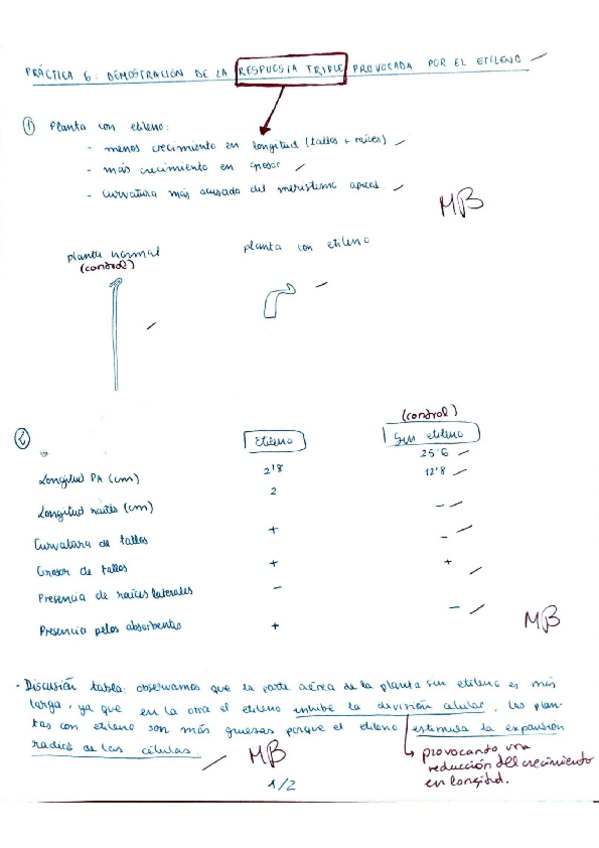 PRÁCTICA 6: DEMOSTRACIÓN DE LA RESPUESTA TRIPLE PROVOCADA POR EL ETILENO
① Planta con etileno:
- menos crecimiento en longitud (tallos + raíces)
- más crecimiento en grosor
- curvatura más acusada del meristemo apical.
MB
planta normal
(control)
planta con etileno
②
(control)
Etileno
Sin etileno
Longitud PA (cm) 2'8 25'6
Longitud raíces (cm) 2 12'8
Curvatura de tallos + -
Grosor de tallos + -
Presencia de raíces laterales - +
Presencia pelos absorbentes + -
MB
- Discusión tabla: observamos que la parte aérea de la planta sin etileno es más
larga, ya que en la otra el etileno inhibe la división celular. Las plan-
tas con etileno son más gruesas porque el etileno estimula la expansión
radial de las células.
MB
provocando una
reducción del crecimiento
en longitud.
1/2